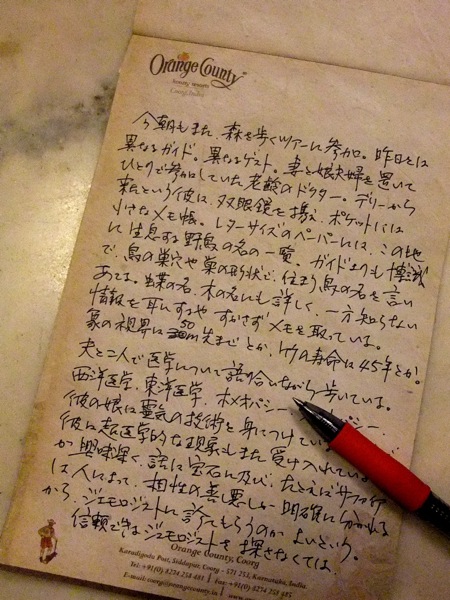 Orange County
luxury resorts
Coorg, India
今朝もまた、森を歩くツアーに参加。昨日とは
異なるガイド。異なるゲスト。妻と娘夫婦を置いて
ひとりで参加していた老齢のドクター。デリーから
来たという彼は、双眼鏡を携え、ポケットには
小さなメモ帳。レターサイズのペーパーには、この地
に生息する野鳥の名の一覧。ガイドよりも博識
で、鳥の巣穴や巣の形状で、住まう鳥の名を言い
あてる。蝶の名、木の名にも詳しく、一方知らない
情報を耳にするや、すかさずメモを取っている。
象の視界は50m先までとか、竹の寿命は45年とか。
夫と二人で医学について語り合いながら歩いている。
西洋医学、東洋医学、ホメオパシー
彼の娘は霊気の技術を身につけてい
彼は超医学的な現象もまた受け入れている
が興味深く、話は宝石に及び、たとえばサファイア
は人によって、相性の善悪が明確に分かれる
から、ジェモロジストに診てもらうのがよいという。
信頼できるジェモロジストを探さなくては。
Orange County, Coorg
Karadigodu Post, Siddapur, Coorg - 571 253, Karnataka, India
Tel: +91(0) 8274 258 481 | Fax: +91(0) 8274 258 485
E-mail: coorg@orangecounty.in |